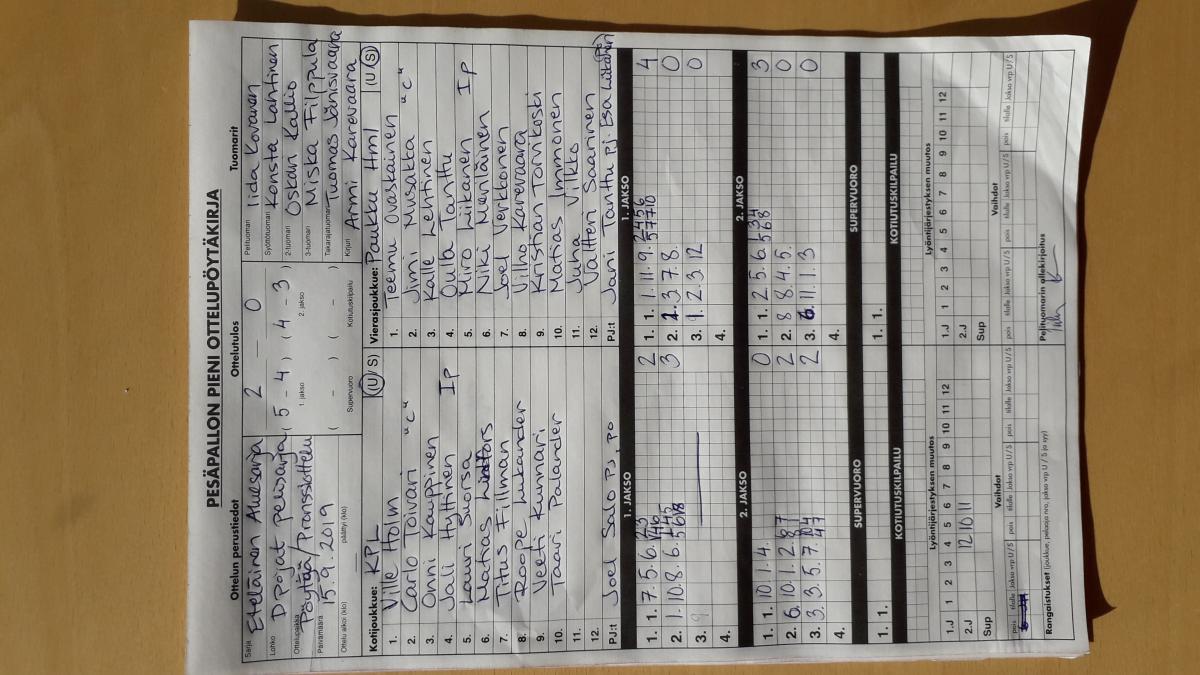 PESÄPALLON PIENI OTTELUPÖYTÄKIRJA
Ottelun perustiedot Ottelutulos Tuomarit
Sarja Eteläinen Aluesarja 2 – 0 Pelituomari Iida Kovanen
Lohko D pojat perussarja ( 5 - 4 ) ( 4 - 3 ) Syöttötuomari Konsta Lahtinen
1. jakso 2. jakso 2-tuomari Oskari Kallio
Ottelupaikka Pöytyä / Pronssiottelu 3-tuomari Miska Filppula
Päivämäärä 15.9.2019 ( – ) ( – ) Takarajatuomari Tuomas Jänisvaara
Ottelu alkoi (klo) päättyi (klo) Supervuoro Kotiutuskilpailu Kirjuri Armi Karevaara
Kotijoukkue: KPL (U/S) Vierasjoukkue: Paukku Hml (U/S)
1. Ville Holm 1. Teemu Ovaskainen
2. Carlo Toivari "C" 2. Jimi Musakka "C"
3. Onni Kauppinen 3. Kalle Lehtinen
4. Jali Hyttinen IP 4. Oula Tanttu
5. Lauri Suorsa 5. Miro Liikanen IP
6. Matias 6. Niki Meriläinen
7. Titus Fillman 7. Joel Verkkonen
8. Roope Lukander 8. Vilho Karevaara
9. Veeti Kunnari 9. Kristian Torvikoski
10. Taavi Palander 10. Matias Immonen
11. 11. Juha Vilkko
12. 12. Valtteri Saarinen
PJ:t Joel Salo PJ, PO PJ:t Jani Tanttu PJ. Esa
1. JAKSO 1. JAKSO
1. 1. 7. 5. 6. 2 1. 1. 1. 11. 9. 4
2. 1. 10. 8. 6. 3 2. 3. 7. 8. 0
3. 3. 1. 2. 3. 12 0
4. 4.
2. JAKSO 2. JAKSO
1. 1. 10. 1. 4. 0 1. 1. 2. 5. 6. 3
2. 6. 10. 1. 2. 2 2. 8 8. 4. 5. 0
3. 3. 3. 5. 7. 2 3. 6. 11. 1. 3 0
4. 4.
SUPERVUORO SUPERVUORO
1. 1. 1. 1.
KOTIUTUSKILPAILU KOTIUTUSKILPAILU
Lyöntijärjestyksen muutos Lyöntijärjestyksen muutos
1.J 1 2 3 4 5 6 7 8 9 10 11 12 1.J 1 2 3 4 5 6 7 8 9 10 11 12
2.J 12 10 11 2.J
Sup Sup
Vaihdot Vaihdot
pois tilalle Jakso vrp U / S pois tilalle Jakso vrp U / S pois tilalle Jakso vrp U / S pois tilalle Jakso vrp U / S pois tilalle Jakso vrp U / S pois tilalle Jakso vrp U / S
Rangaistukset (joukkue, pelaaja nro, jakso vrp U / S ja syy) Pelituomarin allekirjoitus